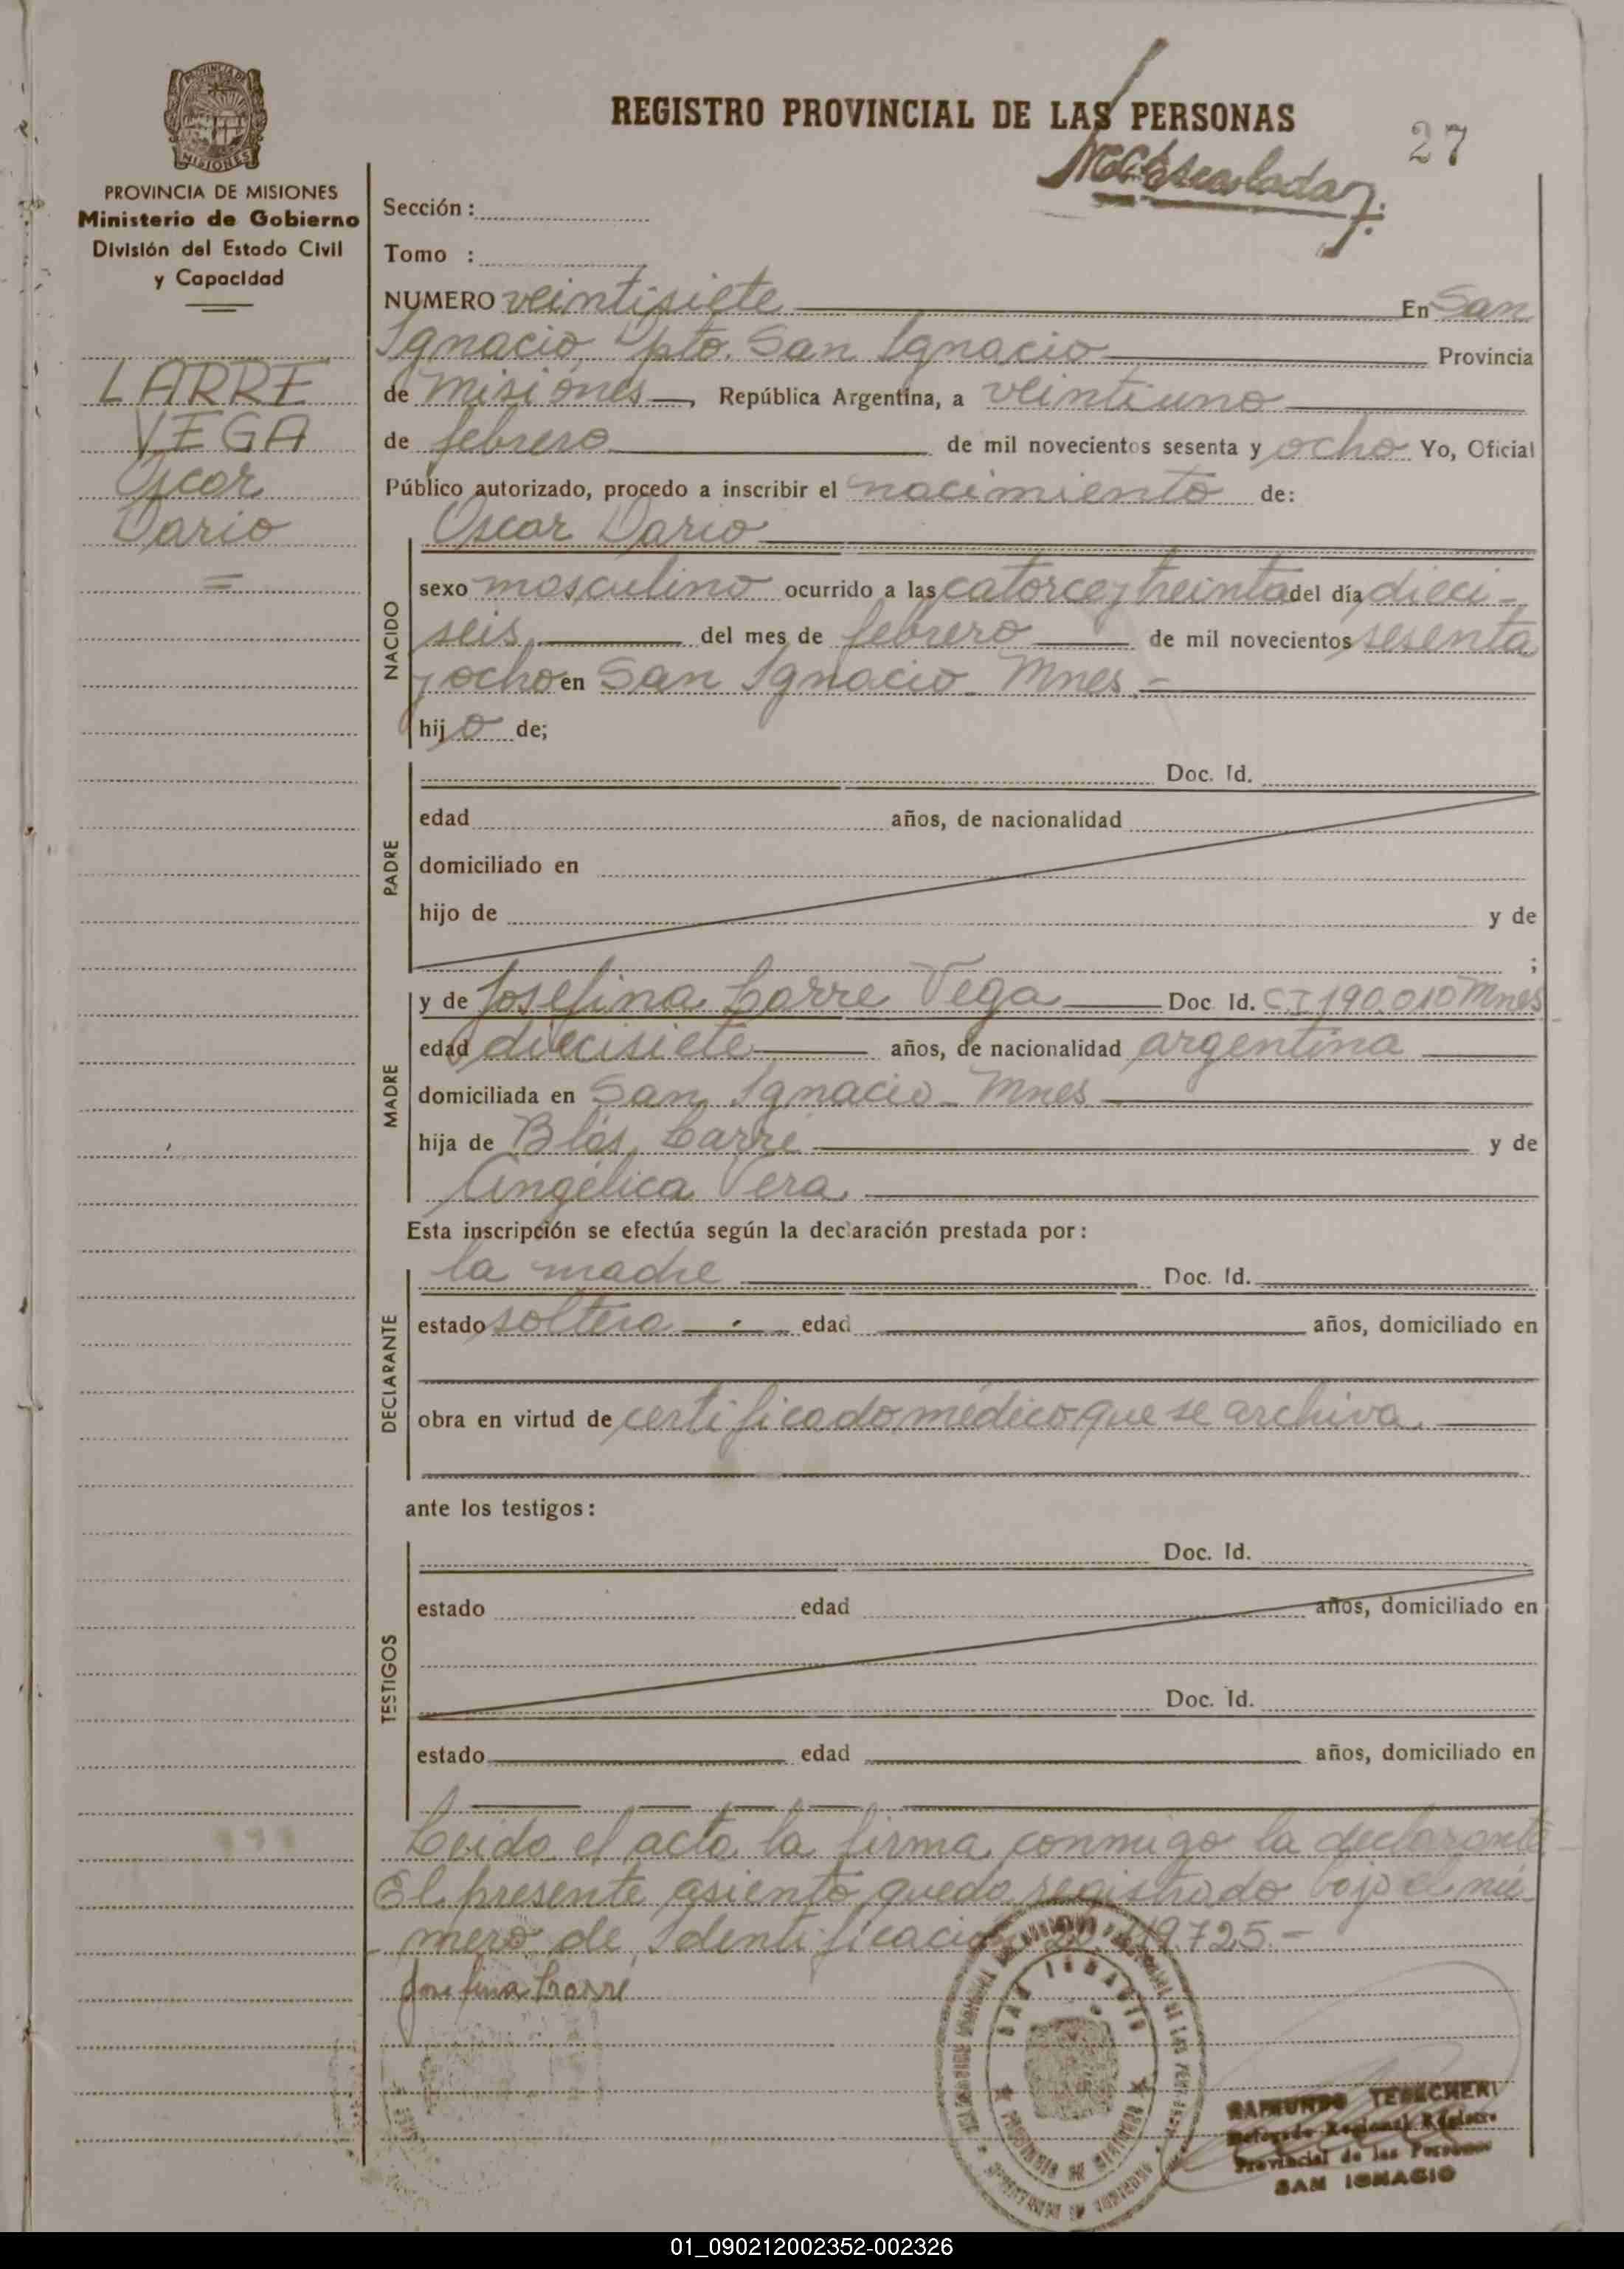 REGISTRO PROVINCIAL DE LAS PERSONAS
27
PROVINCIA DE MISIONES
Ministerio de Gobierno
División del Estado Civil
y Capacidad
LARRE
VEGA
Oscar
Dario
Sección :
Tomo :
NUMERO veintisiete En San
Ignacio, Dpto. San Ignacio Provincia
de Misiones, República Argentina, a veintiuno
de febrero de mil novecientos sesenta y ocho Yo, Oficial
Público autorizado, procedo a inscribir el nacimiento de:
NACIDO
Oscar Dario
sexo masculino ocurrido a las catorce y treinta del día dieci-
seis del mes de febrero de mil novecientos sesenta
y ocho en San Ignacio - Mnes.-
hijo de;
PADRE
Doc. Id.
edad años, de nacionalidad
domiciliado en
hijo de y de
;
MADRE
y de Josefina Larre Vega Doc. Id. C.I 190.010 Mnes
edad diecisiete años, de nacionalidad argentina
domiciliada en San Ignacio - Mnes
hija de Blás Larré y de
Angélica Vera
Esta inscripción se efectúa según la declaración prestada por:
DECLARANTE
la madre Doc. Id.
estado soltera edad años, domiciliado en
obra en virtud de certificado médico que se archiva
ante los testigos:
TESTIGOS
Doc. Id.
estado edad años, domiciliado en
Doc. Id.
estado edad años, domiciliado en
Leida el acta la firma conmigo la declarante
El presente asiento quedo registrado bajo el nú-
mero de Identificación 725.-
Josefina Larré
SAN IGNACIO
PROVINCIA DE MISIONES
RAIMUNDO
Delegado Regional Registro
Provincial de las Personas
SAN IGNACIO
01_090212002352-002326